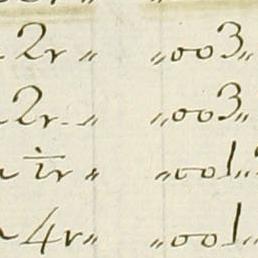 2r „ „003„
2r „ „003„
1r „ „001
4r „ „001„